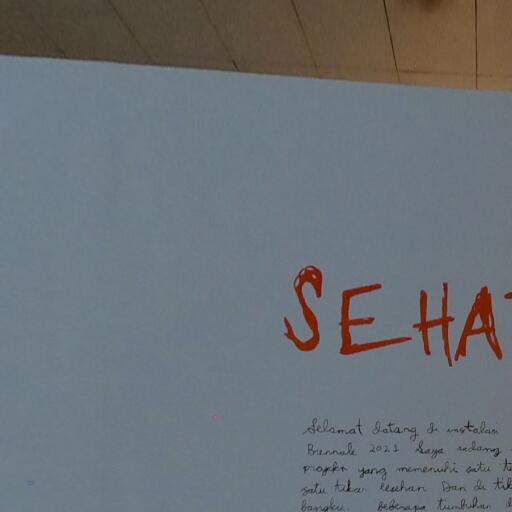 SEHAT
Selamat datang di instalasi
Biennale 2021 Saya sedang
proyekr yang memenuhi satu
satu tikar lesehan. Dan di
bangku. Beberapa tumbuhan